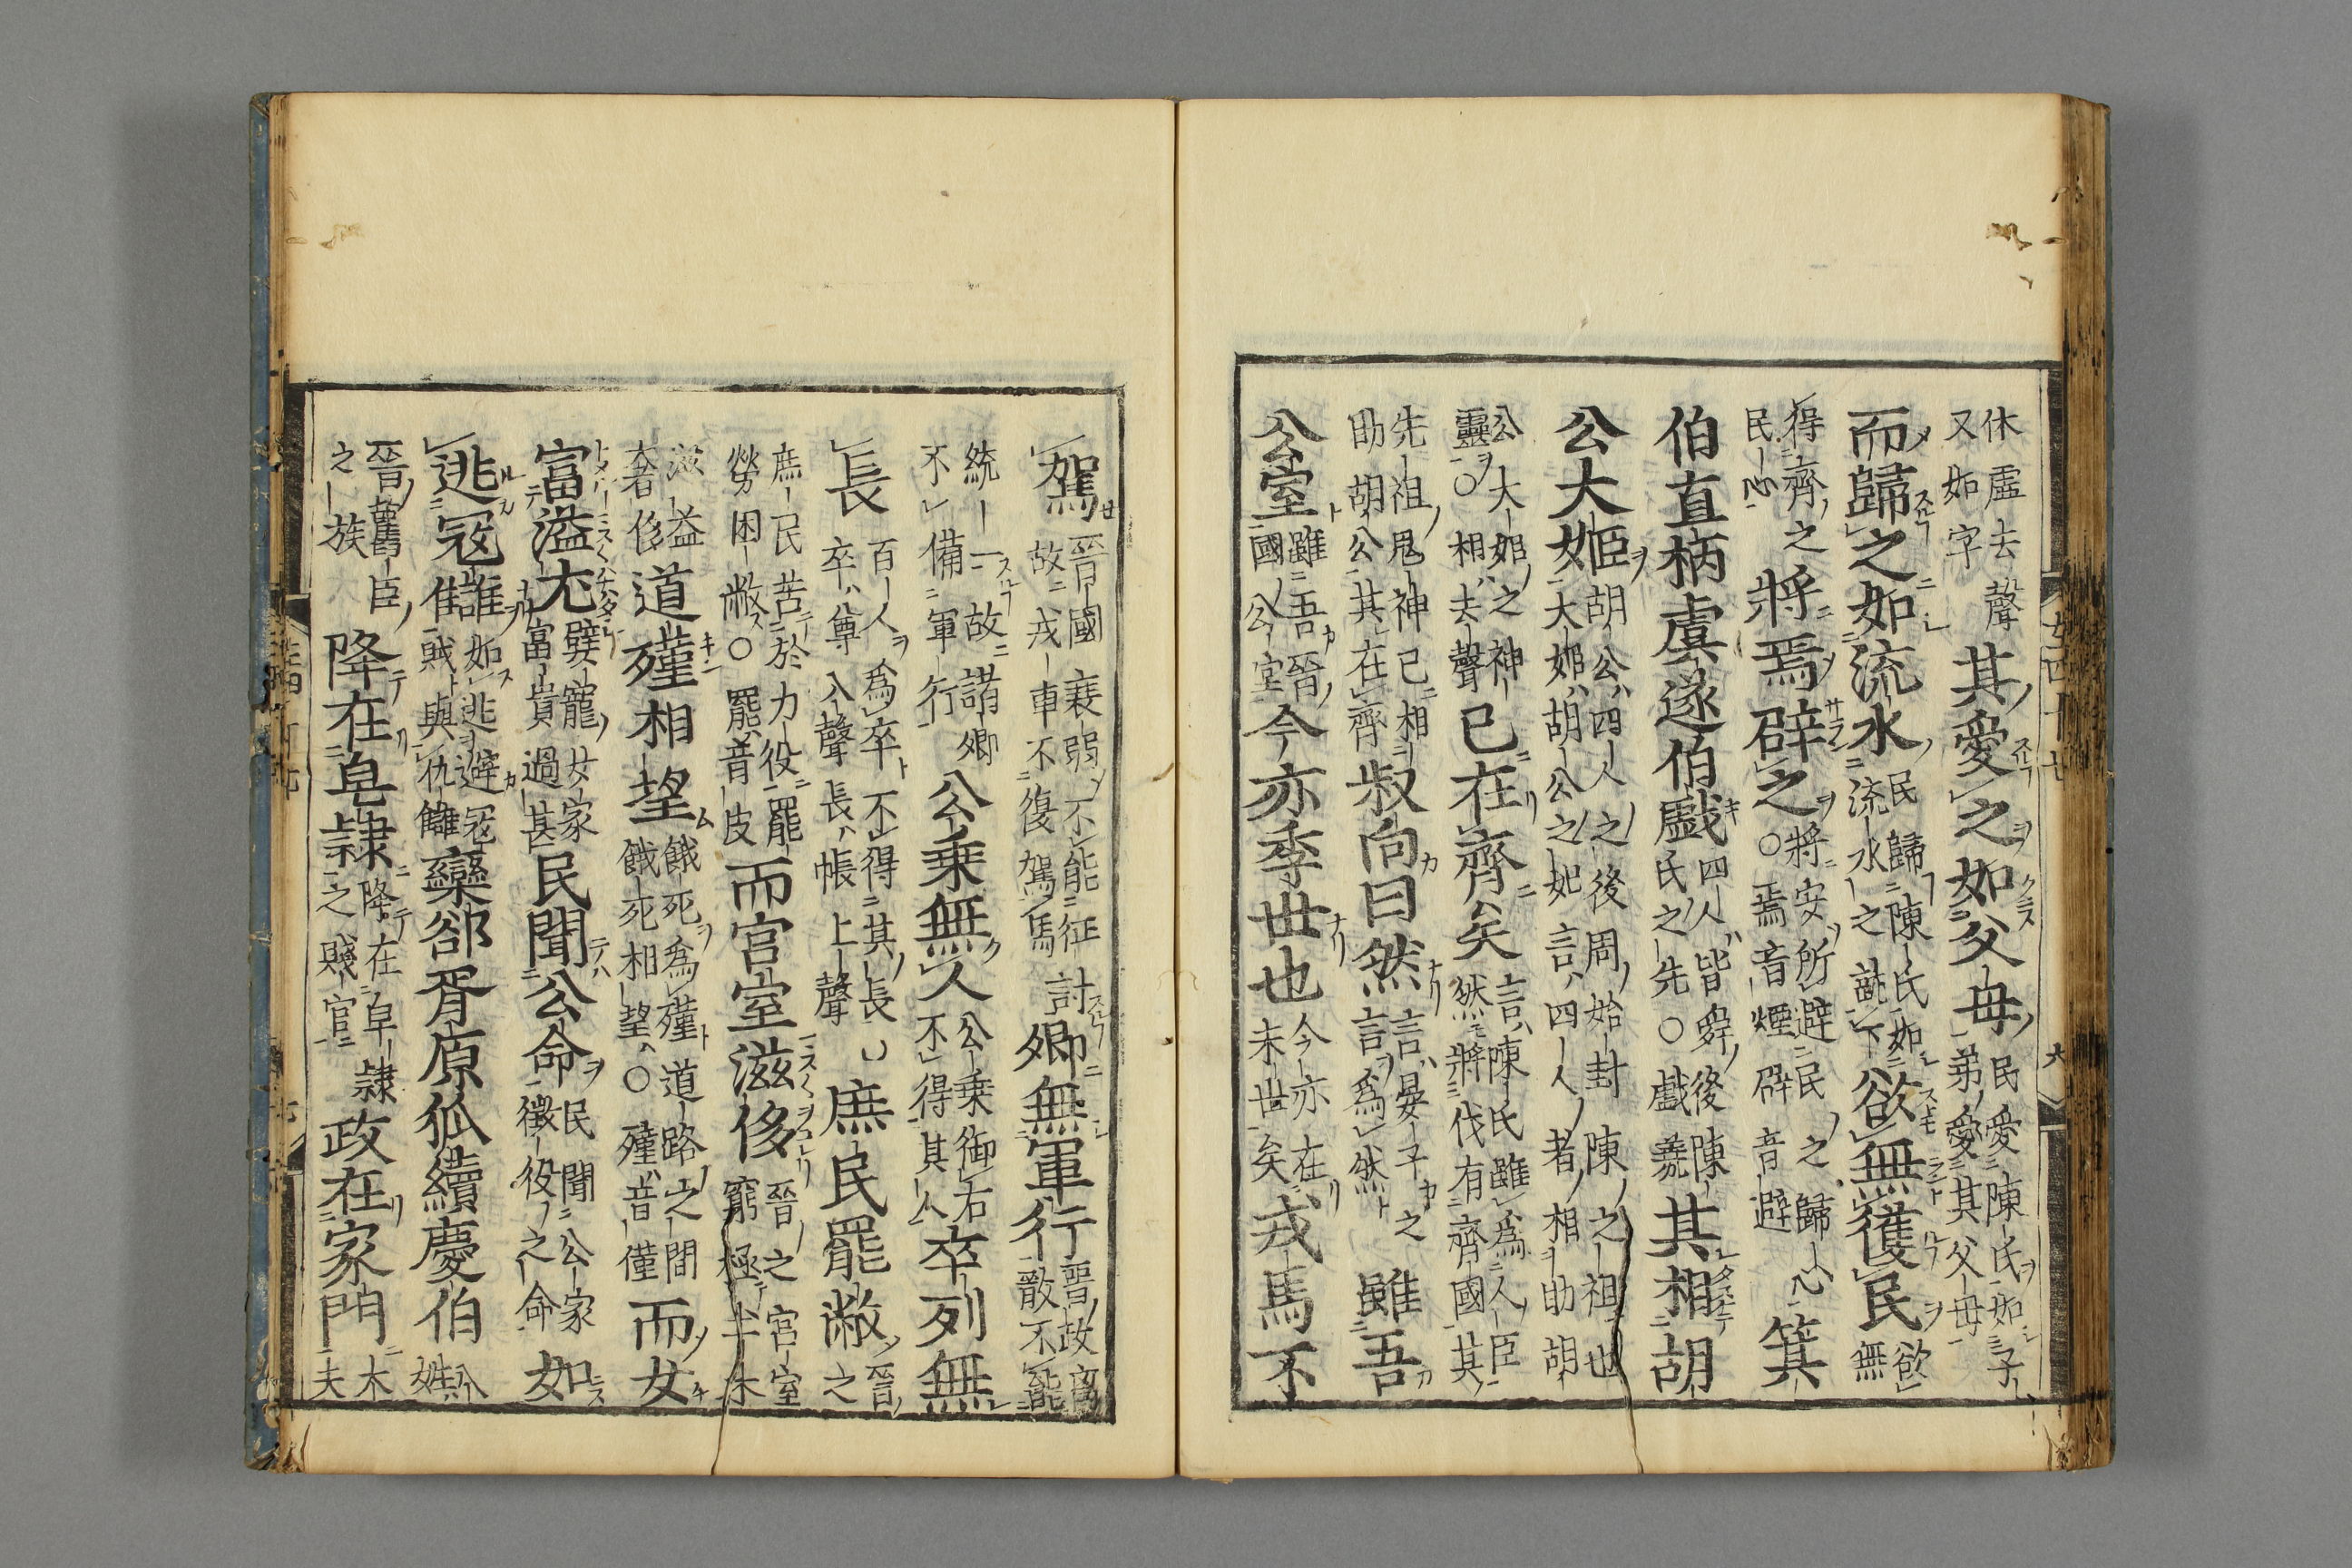 休虛去聲又如字其愛之如父母民愛陳氏如子弟愛其父母
而歸之如流水民歸陳氏如流水之就下欲無獲民欲無
得齊之民心將焉辟之○將安所避民之歸心焉音煙辟音避箕
伯直柄虞遂伯戲四人皆舜後陳氏之先○戲羲其相胡
公大姬胡公四人之後周始封陳之祖也大姬胡公之妃言四人者相助胡
公大姬之神靈○相去聲已在齊矣言陳氏雖為人臣然將伐有齊國其
先祖鬼神已相助胡公其在齊叔向曰然言晏子之言為然雖吾
公室雖吾晉國公室今亦季世也今亦在末世矣戎馬不
駕晉國衰弱不能征討故戎車不復駕馬卿無軍行晉政廢散不能
統一故諸卿不備軍行公乘無人公乘御右不得其人卒列無
長百人為卒不得其長卒尊入聲長帳上聲庶民罷敝晉之
庶民苦於力役罷勞困敝○罷音皮而宮室滋侈晉之宮室窮極土木
滋益奢侈道殣相望餓死為殣道路之間餓死相望○殣音僅而女
富溢尤嬖寵女家富貴過甚民聞公命民聞公家徵役之命如
逃寇讎如逃避寇賊與仇讎欒郤胥原狐續慶伯八姓
晉舊臣之族降在皂隸降在皁隸之賤官政在家門大夫